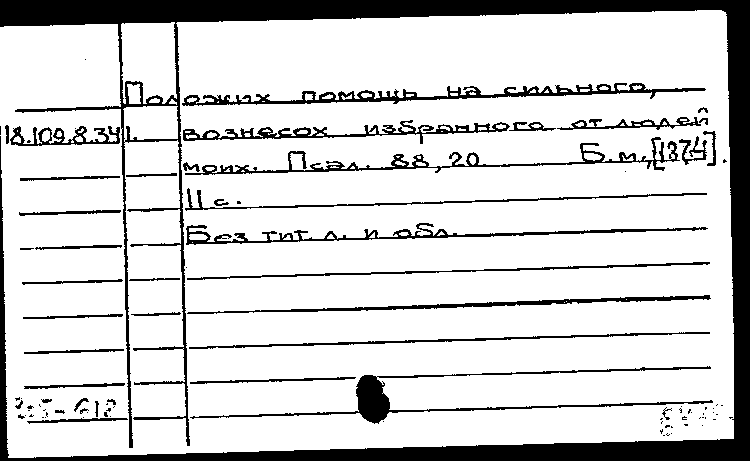 Положих помощь на сильного,
18.109.8.34 1. вознесох избранного от людей
моих. Псал. 88, 20 Б.м., [1874].
11 с.
Без тит. л. и обл.